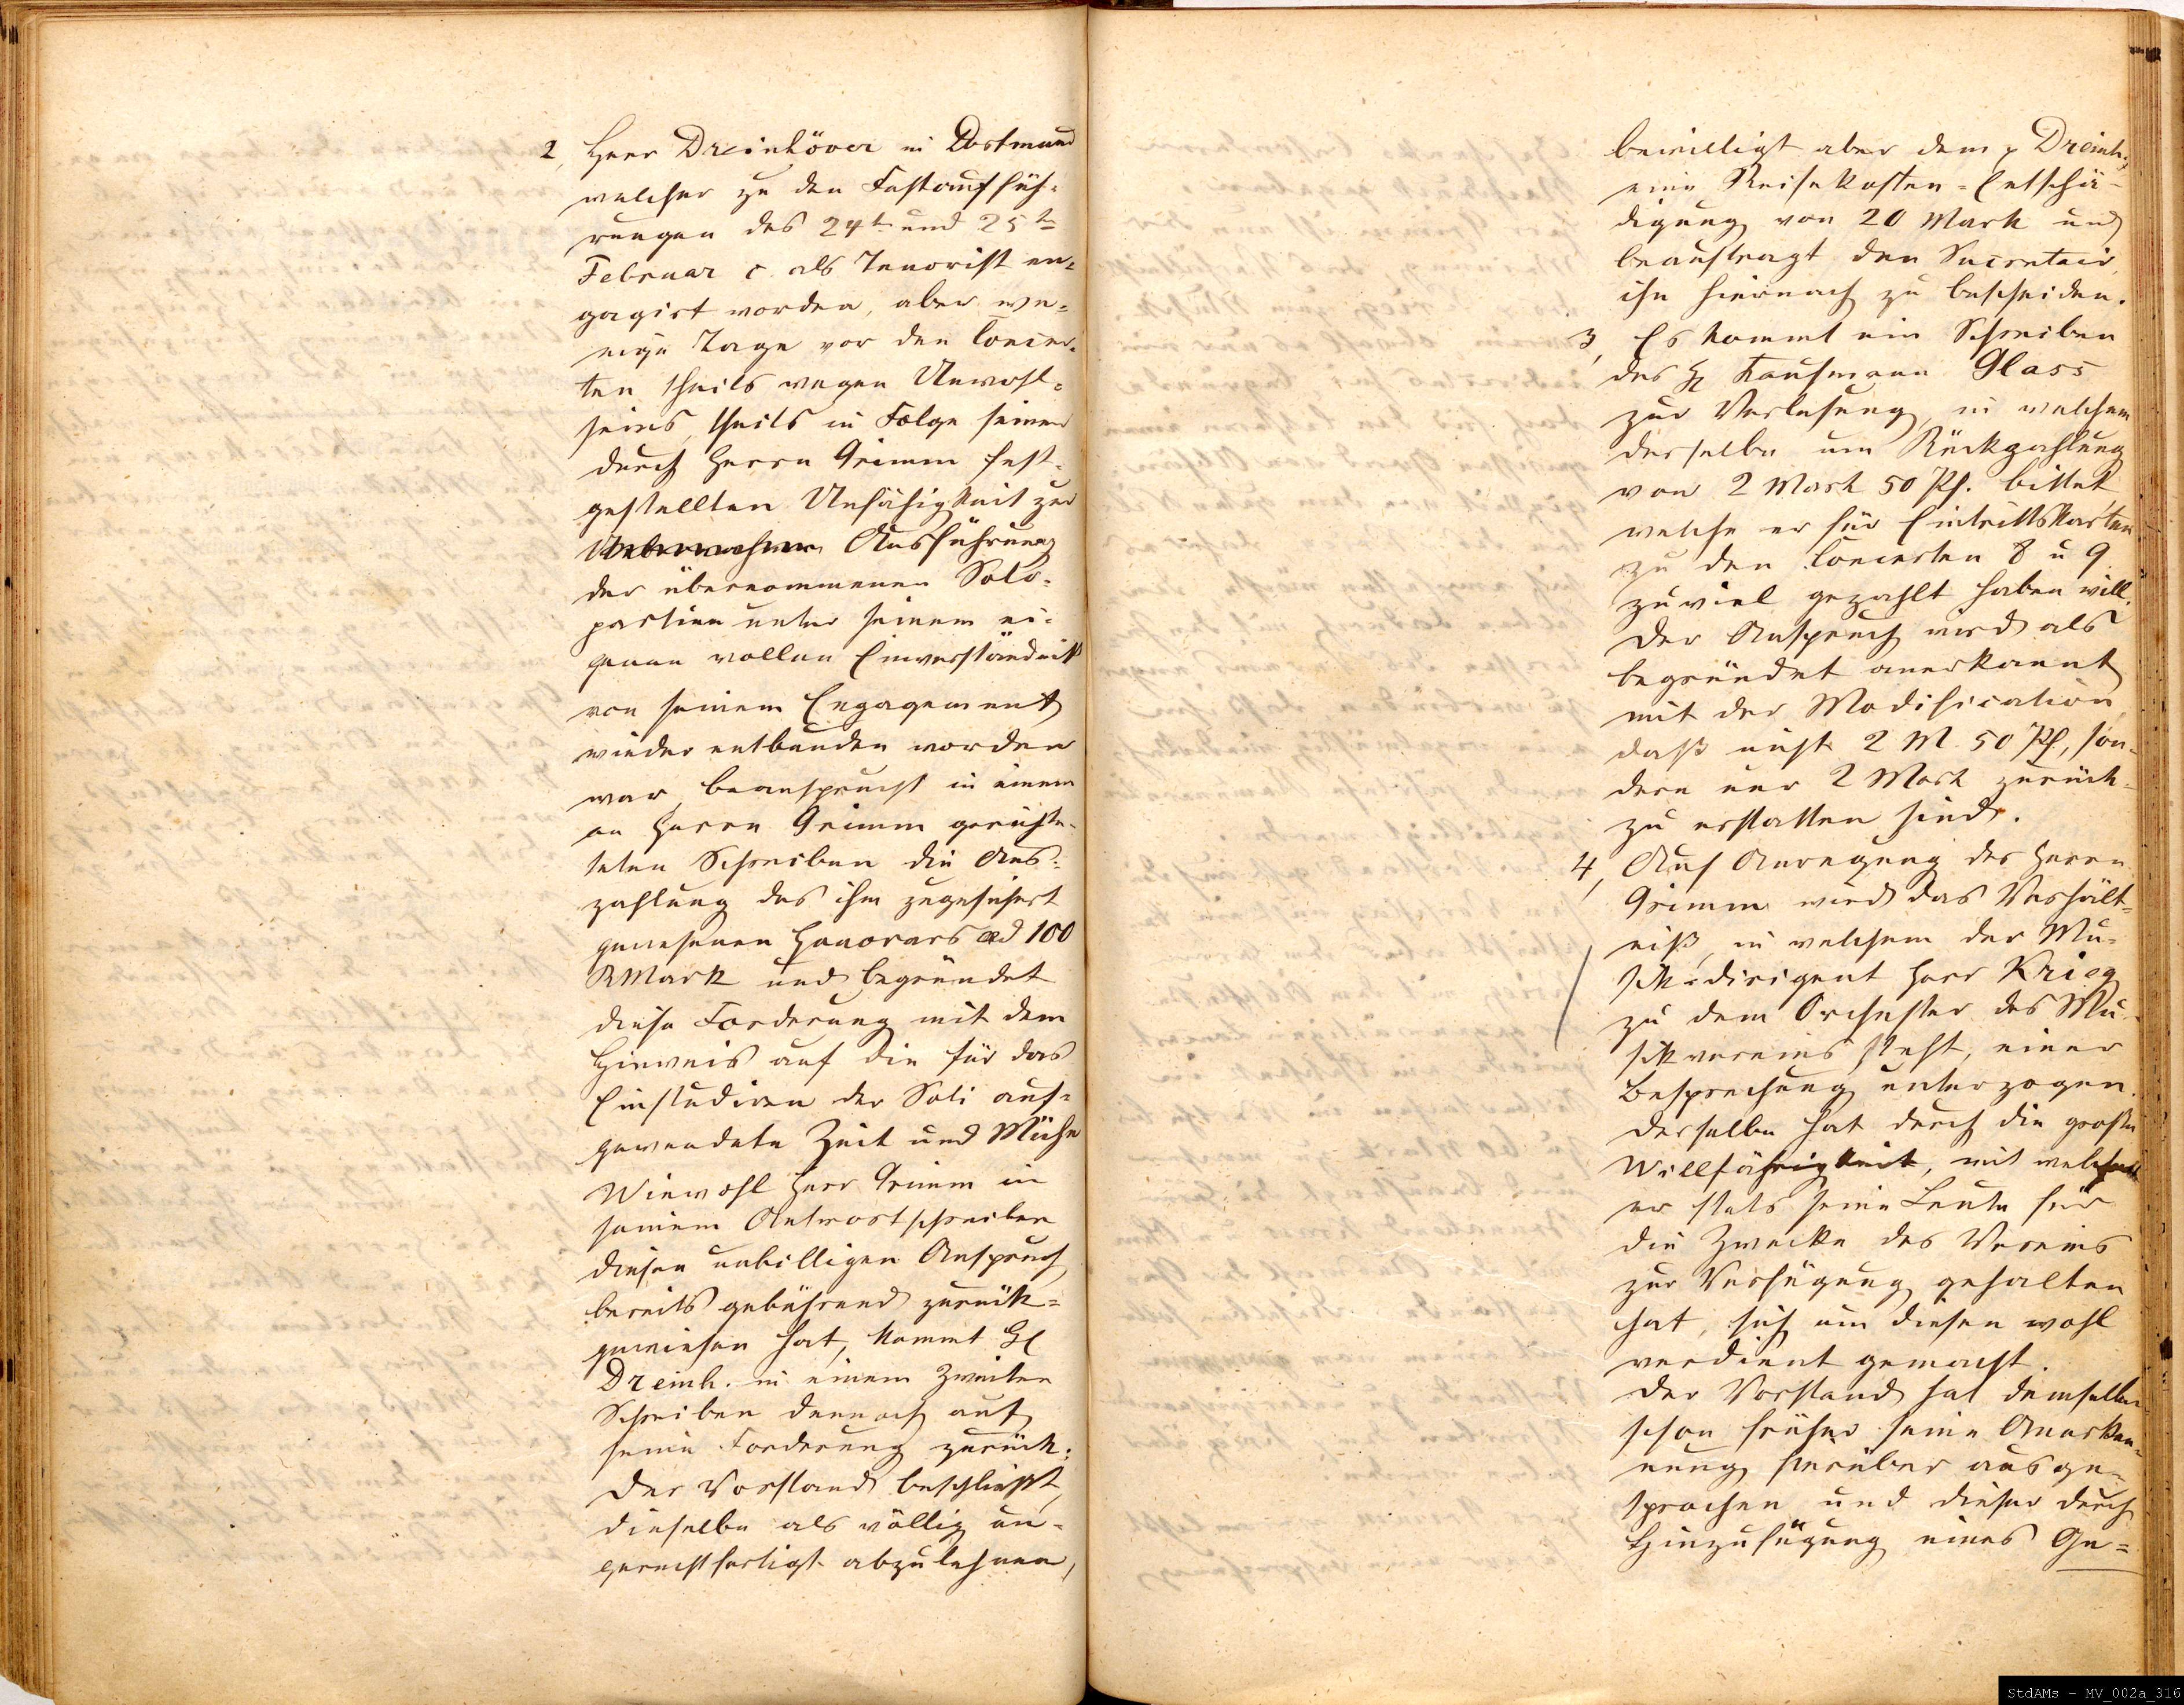 2, Herr Dreinhöver in Dortmund
welcher zu den Festauffüh-
rungen des 24t und 25t
Februar c. als Tenorist en-
gagirt worden, aber we-
nige Tage vor den Concer-
ten theils wegen Unwohl-
seins, theils in Folge seiner
durch Herrn Grimm fest-
gestellten Unfähigkeit zur
Ausführung
der übernommenen Solo-
partien unter seinem ei-
genen vollen Einverständniß
von seinem Engagement
wieder entbunden worden
war, beansprucht in einem
an Herrn Grimm gerichte-
teten Schreiben die Aus-
zahlung des ihm zugesichert
gewesenen Honorars ad 100
RMark und begründet
diese Forderung mit dem
Hinweis auf die für das
Einstudiren der Soli auf-
gewendete Zeit und Mühe
Wiewohl Herr Grimm in
seinem Antwortschreiben
diesen unbilligen Anspruch
bereits gebührend zurück-
gewiesen hat, kommt H
Dreinh. in einem zweiten
Schreiben dennoch auf
seine Forderung zurück.
Der Vorstand beschließt,
dieselbe als völlig un-
gerechtfertigt abzulehnen,
bewilligt aber dem p Dreinh.
eine Reisekosten-Entschä-
digung von 20 Mark und
beauftragt den Secretair,
ihn hiernach zu bescheiden.
3, Es kommt ein Schreiben
des H Kaufmann Glass
zur Verlesung, in welchem
derselbe um Rückzahlung
von 2 Mark 50 Pf. bittet
welche er für Eintrittskarten
zu den Concerten 8 u 9
zuviel gezahlt haben will.
Der Anspruch wird als
begründet anerkannt
mit der Modification,
daß nicht 2 M. 50 Pf, son-
dern nur 2 Mark zurück-
zu erstatten sind.
4, Auf Anregung des Herrn
Grimm wird das Verhält-
niß, in welchem der Mu-
sikdirigent Herr Krieg
zu dem Orchester des Mu-
sikvereins steht, einer
Besprechung unterzogen.
Derselbe hat durch die große
Willfährigkeit, mit welcher
er stets seine Leute für
die Zwecke des Vereins
zur Verfügung gehalten
hat, sich um diesen wohl
verdient gemacht.
Der Vorstand hat demselben
schon früher seine Anerken-
nung hierüber ausge-
sprochen und dieser durch
Hinzufügung eines Ge-
StdAMs - MV_002a_316